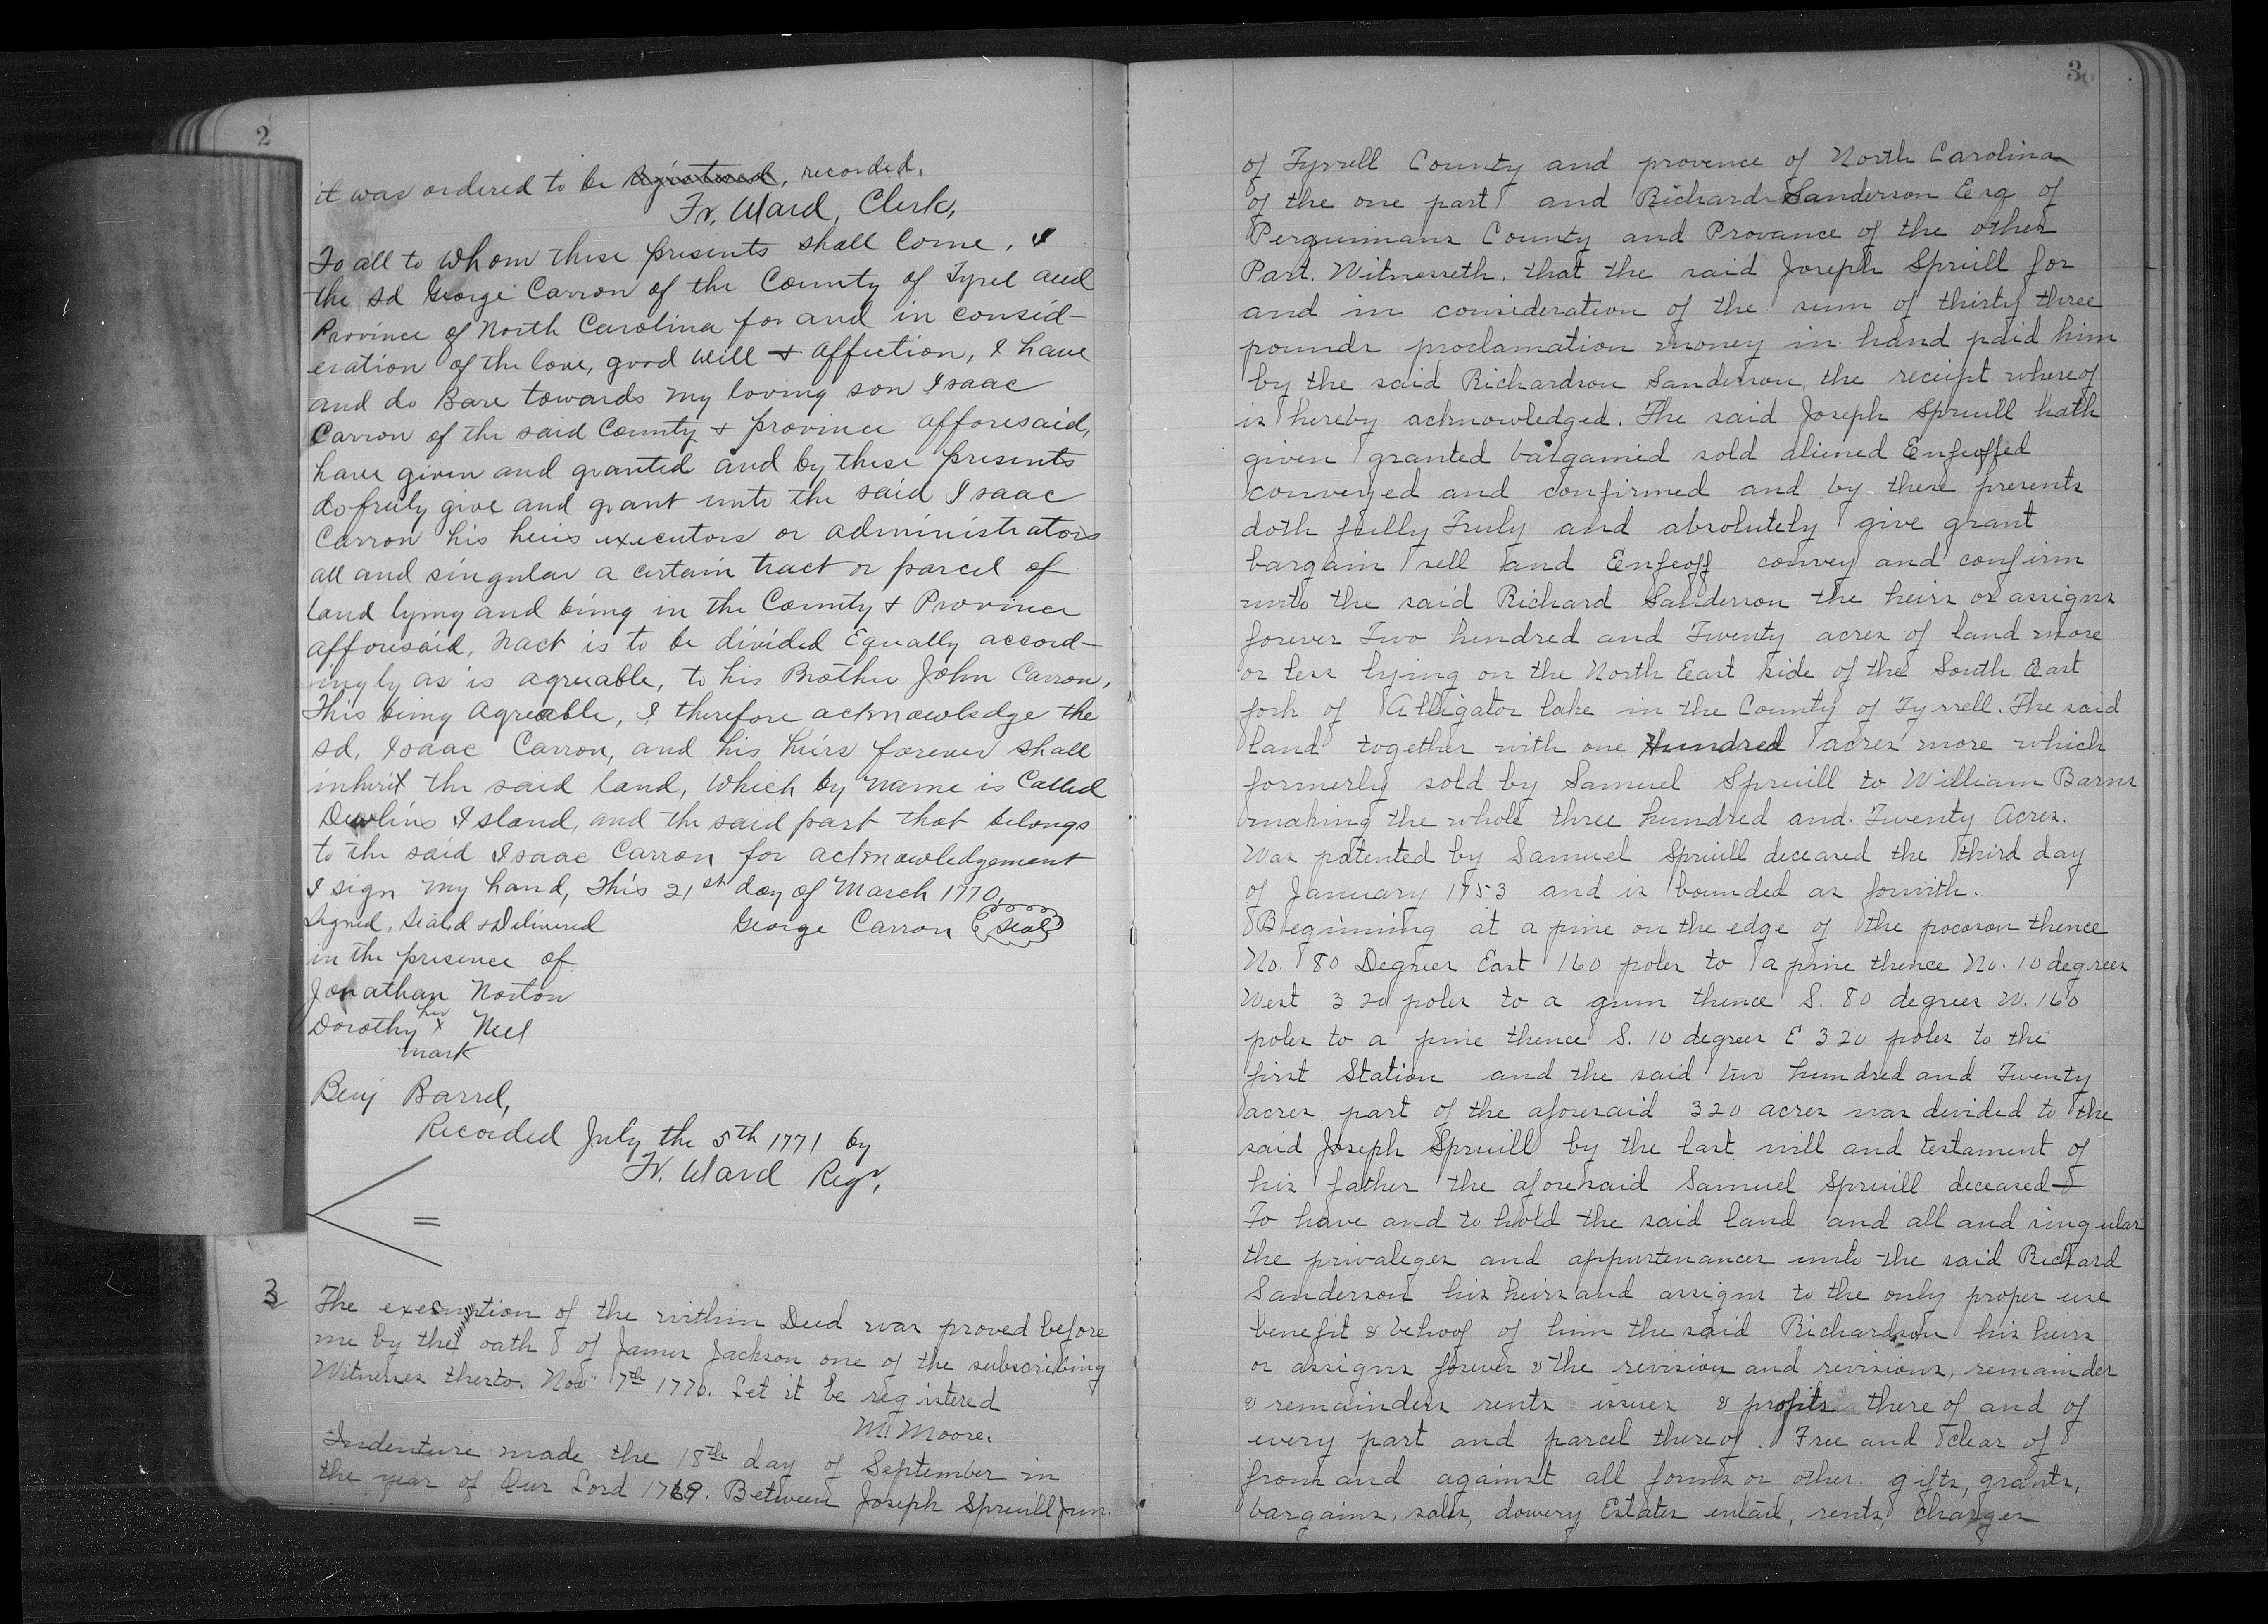 2
it was ordered to be registered, recorded.
Fr, Ward, Clerk,
To all to whom these presents shall Come, I
the sd George Carron of the County of Tyrel and
Province of North Carolina for and in consid-
eration of the love, good will + affection, I have
and do Bare towards my loving son Isaac
Carron of the said County + province afforesaid,
have given and granted and by these presents
do freely give and grant unto the said Isaac
Carron his heirs executors or administrators
all and singular a certain tract or parcel of
land lying and being in the County + Province
afforesaid, tract is to be divided Equally accord-
ingly as is agreeable, to his Brother John Carron,
This being Agreeable, I therefore acknowledge the
sd, Isaac Carron, and his heirs forever shall
inherit the said land, which by name is Called
Island, and the said part that belongs
to the said Isaac Carron for acknowledgement
I sign my hand, this 21st day of March 1770,
Signed, Sealed & Delivered George Carron Seal
in the presence of
Jonathan Norton
her
Dorothy x Neel
mark
Benj Barrel,
Recorded July the 5th 1771 by
Fr. Ward Regr,
=
3
The execution of the within Deed was proved before
me by the oath of James Jackson one of the subscribing
Witnesses therto. Nov 7th 1770. Let it be registered
M. Moore.
Indenture made the 18th day of September in
the year of Our Lord 1769. Between Joseph Spruill Jun.
3
of Tyrrell County and provence of North Carolina
of the one part and Richard Sanderson Esq of
Perquimans County and Provance of the other
Part. Witnesseth. that the said Joseph Spruill for
and in consideration of the sum of thirty three
pounds proclamation money in hand paid him
by the said Richardson Sanderson, the receipt whereof
is hereby acknowledged. The said Joseph Spruill hath
given granted bargained sold aliened Enfeoffed
conveyed and confirmed and by these presents
doth fully Truly and absolutely give grant
bargain sell and Enfeoff convey and confirm
unto the said Richard Sanderson the heirs or assigns
forever Two hundred and Twenty acres of land more
or less lying on the North East side of the South East
fork of Alligator lake in the County of Tyrrell. The said
land together with one Hundred acres more which
formerly sold by Samuel Spruill to William Barns
making the whole three hundred and. Twenty Acres.
Was patented by Samuel Spruill deceased the third day
of January 1753 and is bounded as forwith.
Beginning at a pine on the edge of the pocoson thence
No. 80 Degrees East 160 poles to a pine thence No. 10 degrees
West 320 poles to a gum thence S. 80 degrees W. 160
poles to a pine thence S. 10 degrees E 320 poles to the
first Station and the said two hundred and Twenty
acres part of the aforesaid 320 acres was divided to the
said Joseph Spruill by the last will and testament of
his father the aforesaid Samuel Spruill deceased
To have and to hold the said land and all and singular
the privaleges and appurtenances unto the said Richard
Sanderson his heirs and assigns to the only proper use
benefit & behoof of him the said Richardson his heirs
or assigns forever & the revision and revisions, remainder
& remainders rents issues & profits there of and of
every part and parcel thereof. Free and clear of
from and against all forms or other. gifts, grants,
bargains, sales, dowery Estates entail, rents, charges